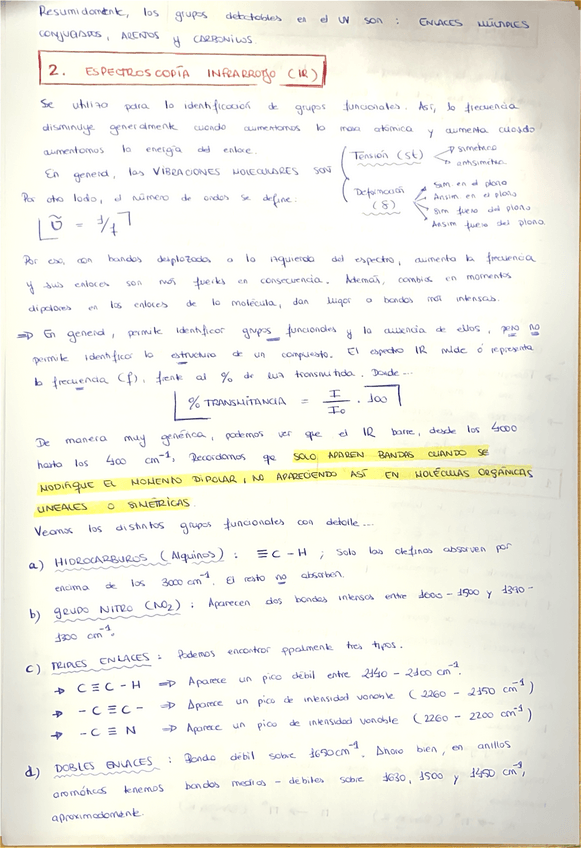 Resumidamente, los grupos detectables en el UV son : ENLACES MÚLTIPLES
CONJUGADOS, ARENOS y CARBONILOS.
2. ESPECTROSCOPÍA INFRARROJO (IR)
Se utiliza para la identificación de grupos funcionales. Así, la frecuencia
disminuye generalmente cuando aumentamos la masa atómica y aumenta cuando
aumentamos la energía del enlace.
En general, las VIBRACIONES MOLECULARES SON
Tensión (st)
simétrica
antisimétrica
Deformación (δ)
Sim en el plano
Ansim en el plano
Sim fuera del plano
Ansim fuera del plano.
Por otro lado, el número de ondas se define:
Ũ = 1/f
Por eso, con bandas desplazadas a la izquierda del espectro, aumenta la frecuencia
y sus enlaces son más fuertes en consecuencia. Además, cambios en momentos
dipolares en los enlaces de la molécula, dan lugar a bandas más intensas.
⇒ En general, permite identificar grupos funcionales y la ausencia de ellos, pero no
permite identificar la estructura de un compuesto. El espectro IR mide o representa
la frecuencia (f), frente al % de luz transmitida. Donde...
% TRANSMITANCIA = I/I₀ · 100
De manera muy genérica, podemos ver que el IR barre, desde los 4000
hasta los 400 cm⁻¹, Recordamos que SOLO APAREN BANDAS CUANDO SE
MODIFIQUE EL MOMENTO DIPOLAR, NO APARECIENDO ASÍ EN MOLÉCULAS ORGÁNICAS
LINEALES O SIMÉTRICAS.
Veamos los distintos grupos funcionales con detalle...
a) HIDROCARBUROS (Alquinos) : ≡C-H ; Solo las olefinas absorven por
encima de los 3000 cm⁻¹. El resto no absorben.
b) GRUPO NITRO (NO₂) : Aparecen dos bandas intensas entre 1600 - 1500 y 1390 -
1300 cm⁻¹.
c) TRIPLES ENLACES : Podemos encontrar ppalmente tres tipos.
→ C ≡ C - H ⇒ Aparece un pico débil entre 2140 - 2100 cm⁻¹.
→ - C ≡ C - ⇒ Aparece un pico de intensidad variable (2260 - 2150 cm⁻¹)
→ - C ≡ N ⇒ Aparece un pico de intensidad variable (2260 - 2200 cm⁻¹)
d) DOBLES ENLACES : Banda débil sobre 1650 cm⁻¹. Ahora bien, en anillos
aromáticos tenemos bandas medias - débiles sobre 1630, 1500 y 1450 cm⁻¹,
aproximadamente.